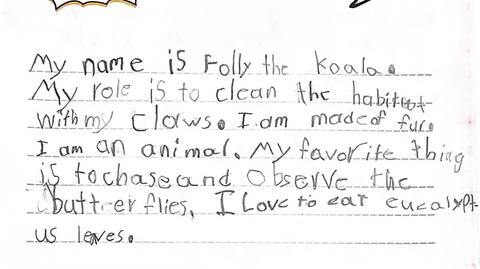 My name is Folly the koala.
My role is to clean the habiteet
with my claws. I am made of fur.
I am an animal. My favorite thing
is to chase and observe the
butterflies. I Love to eat eucalypt-
us leves.